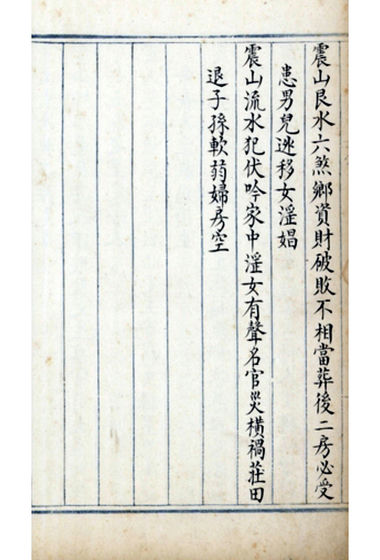 震山艮水六煞鄉資財破敗不相當葬後二房必受
患男兒逃移女淫娼
震山流水犯伏吟家中淫女有聲名官災橫禍莊田
退子孫軟弱婦房空